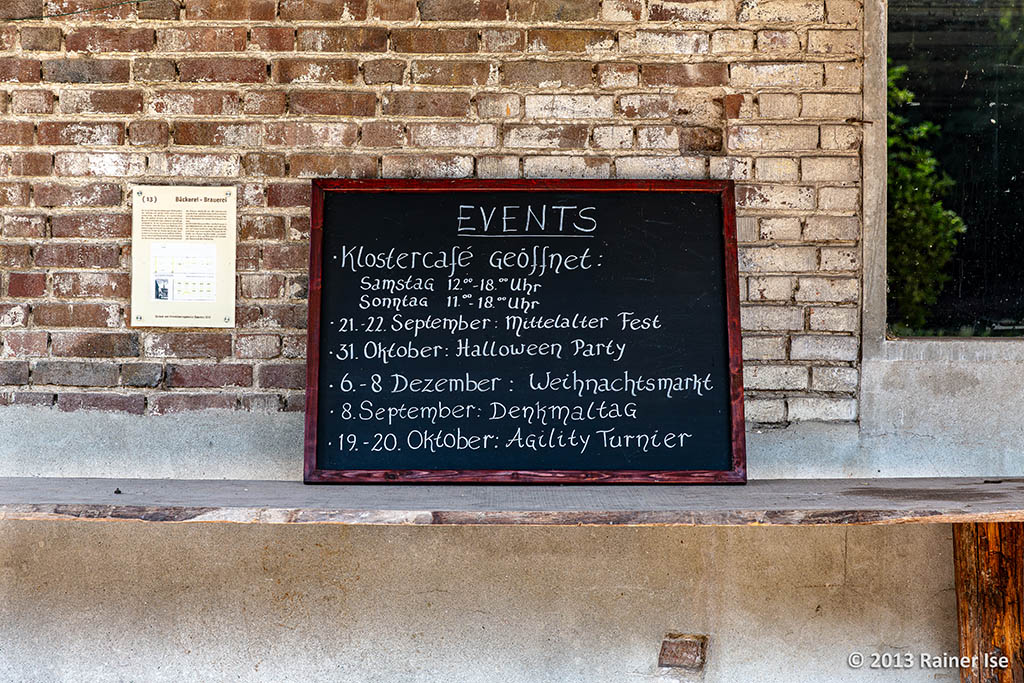 (13) Bäckerei - Brauerei
EVENTS
· Klostercafé geöffnet:
Samstag 12.⁰⁰-18.⁰⁰ Uhr
Sonntag 11.⁰⁰-18.⁰⁰ Uhr
· 21.-22. September: Mittelalter Fest
· 31. Oktober: Halloween Party
· 6.-8 Dezember: Weihnachtsmarkt
· 8. September: Denkmaltag
· 19.-20. Oktober: Agility Turnier
© 2013 Rainer Ise